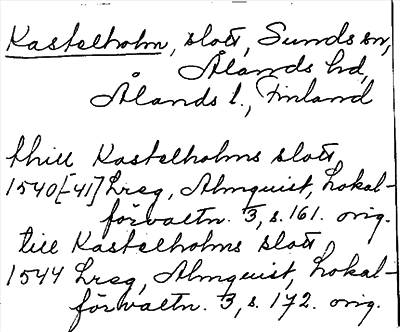 Kastelholm, slott, Sunds sn,
Ålands hd,
Ålands l., Finland
thill Kastelholms slott
1540[-41] Lreg, Almquist, Lokal-
förvaltn. 3, s. 161. orig.
till Kastelholms slott
1544 Lreg, Almquist, Lokal-
förvaltn. 3, s. 172. orig.